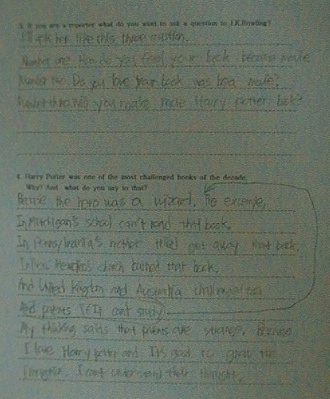 3. If you are a reporter what do you want to ask a question to J.K.Rowling?
I'll ask her like this three question.
Number one. How do you feel your book became movie
Number two. Do you love your book was been movie?
Number three. Will you make more Harry potter book?
4. Harry Potter was one of the most challenged books of the decade.
Why? And what do you say to that?
the hero was a wizard. For example,
In Michigan's school can't read that book,
In Pennsylvania's mother get away that book,
In New church burned that book.
And United Kingdom and Australia challenged too.
And parents can't study
My thinking saids that parents are strange, because
I love Harry potter and It's good to give me
I can't understand their thought.